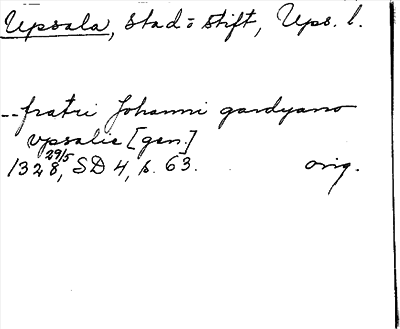 Upsala, stad o stift, Ups. l.
-- fratri Johanni gardyano
vpsalie [gen.]
1328 29/5, SD 4, s. 63. orig.